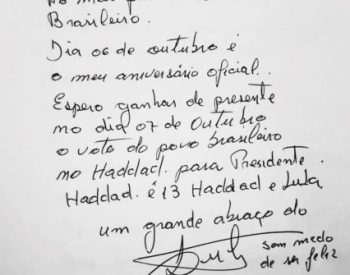 Brasileiro.
Dia 06 de outubro é
o meu aniversário oficial.
Espero ganhar de presente
no dia 07 de Outubro
o voto do povo brasileiro
no Haddad. para Presidente.
Haddad. é 13 Haddad e Lula
um grande abraço do
sem medo
de ser feliz